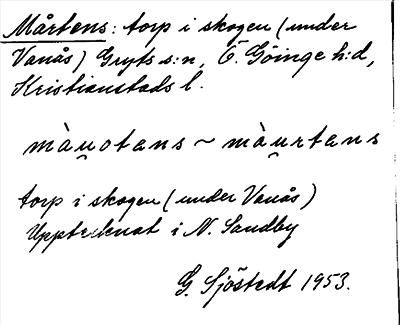 Mårtens: torp i skogen (under
Vanås) Gryts s:n, Ö. Göinge h:d,
Kristianstads l.
màu̯otens ~ màu̯rtens
torp i skogen (under Vanås)
Upptecknat i N. Sandby
G. Sjöstedt 1953.